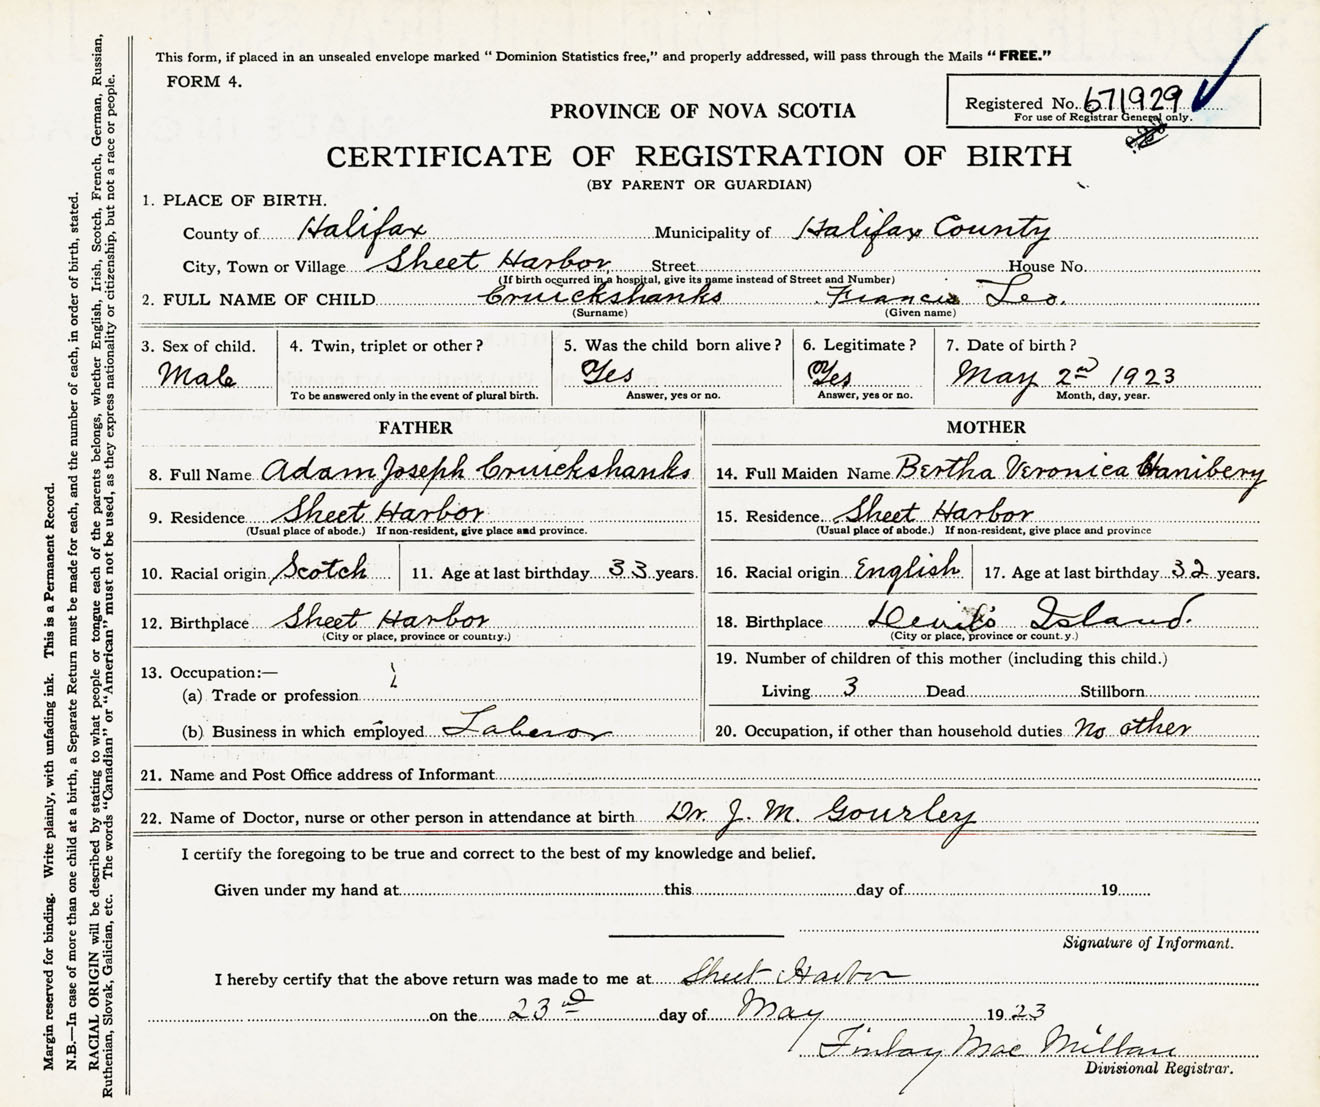 This form, if placed in an unsealed envelope marked “ Dominion Statistics free,” and properly addressed, will pass through the Mails “ FREE.”
FORM 4.
Registered No. 671929
For use of Registrar General only.
PROVINCE OF NOVA SCOTIA
CERTIFICATE OF REGISTRATION OF BIRTH
(BY PARENT OR GUARDIAN)
1. PLACE OF BIRTH.
County of Halifax Municipality of Halifax County
City, Town or Village Sheet Harbor Street House No.
(If birth occurred in a hospital, give its name instead of Street and Number)
2. FULL NAME OF CHILD Cruickshanks Francis Leo.
(Surname) (Given name)
3. Sex of child. 4. Twin, triplet or other ? 5. Was the child born alive ? 6. Legitimate ? 7. Date of birth ?
Male Yes Yes May 2nd 1923
To be answered only in the event of plural birth. Answer, yes or no. Answer, yes or no. Month, day, year.
FATHER MOTHER
8. Full Name Adam Joseph Cruickshanks 14. Full Maiden Name Bertha Veronica
9. Residence Sheet Harbor 15. Residence Sheet Harbor
(Usual place of abode.) If non-resident, give place and province. (Usual place of abode.) If non-resident, give place and province
10. Racial origin Scotch 11. Age at last birthday 33 years. 16. Racial origin English 17. Age at last birthday 32 years.
12. Birthplace Sheet Harbor 18. Birthplace Devil's Island.
(City or place, province or country.) (City or place, province or count.y.)
13. Occupation:— 19. Number of children of this mother (including this child.)
(a) Trade or profession Living 3 Dead Stillborn
(b) Business in which employed Laberor 20. Occupation, if other than household duties No other
21. Name and Post Office address of Informant
22. Name of Doctor, nurse or other person in attendance at birth Dr. J. M. Gourley
I certify the foregoing to be true and correct to the best of my knowledge and belief.
Given under my hand at this day of 19
Signature of Informant.
I hereby certify that the above return was made to me at Sheet Harbor
on the 23rd day of May 1923
Finlay Mac Millan
Divisional Registrar.
Margin reserved for binding. Write plainly, with unfading ink. This is a Permanent Record.
N.B.—In case of more than one child at a birth, a Separate Return must be made for each, and the number of each, in order of birth, stated.
RACIAL ORIGIN will be described by stating to what people or tongue each of the parents belongs, whether English, Irish, Scotch, French, German, Russian,
Ruthenian, Slovak, Galician, etc. The words “Canadian” or “American” must not be used, as they express nationality or citizenship, but not a race or people.